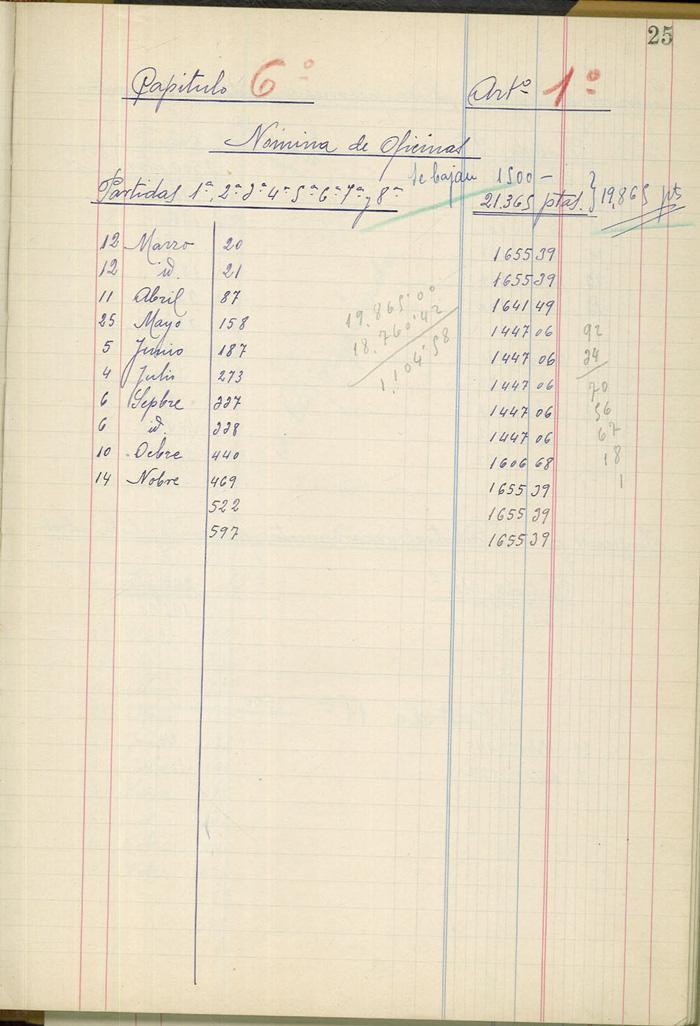 25
Capitulo 6º Artº 1º
Nómina de Oficinas
Se bajan 1500 -
Partidas 1ª, 2ª 3ª 4ª 5ª 6ª 7ª y 8ª 21.365 ptas. } 19,865 pts
12 Marzo 20 1655 39
12 id. 21 1655 39
11 Abril 87 1641 49
25 Mayo 158 1447 06
5 Junio 187 1447 06
4 Julio 273 1447 06
6 Sepbre 337 1447 06
6 id. 338 1447 06
10 Ocbre 440 1606 68
14 Nobre 469 1655 39
522 1655 39
597 1655 39
19.865'00
18.760'42
1,104'58
92
24
70
56
67
18
1